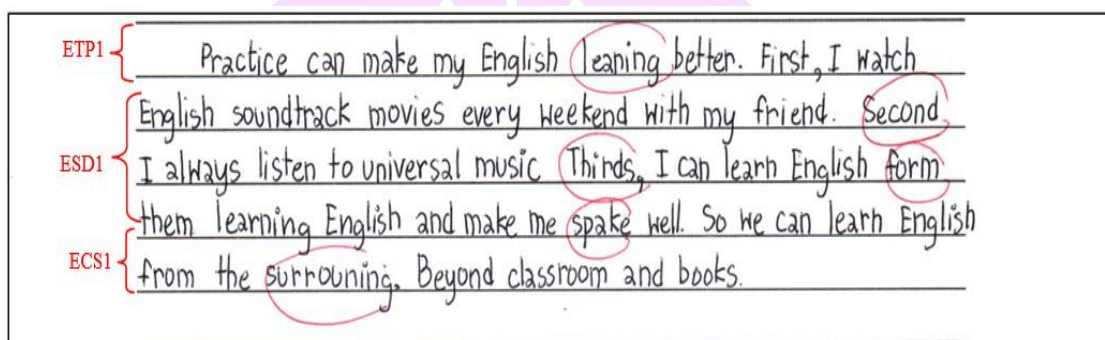 ETP1
Practice can make my English leaning better. First, I watch
English soundtrack movies every weekend with my friend. Second
ESD1
I always listen to universal music Thirds, I can learn English form
them learning English and make me spake well. So we can learn English
ECS1
from the surrouning. Beyond classroom and books.